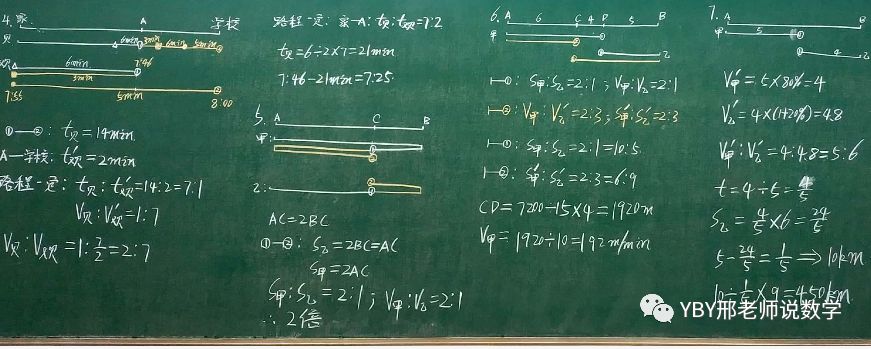 4. 家 A 学校
贝
6min 3min 6min 5min
欢
6min 7:46
3min
7:55 5min 8:00
①—②: t贝=14min
A—学校: t'欢=2min
路程一定: t贝:t'欢=14:2=7:1
V贝:V'欢=1:7
V贝:V欢=1:7/2=2:7
路程一定: 家—A: t贝:t欢=7:2
t贝=6÷2×7=21min
7:46-21min=7:25.
5. A C B
甲:
乙:
AC=2BC
①—②: S乙=2BC=AC
S甲=2AC
S甲:S乙=2:1; V甲:V乙=2:1
∴2倍
6. A 6 C 4 D 5 B
甲
乙
①: S甲:S乙=2:1; V甲:V乙=2:1
②: V甲:V乙'=2:3; S甲':S乙'=2:3
①: S甲:S乙=2:1=10:5.
②: S甲':S乙'=2:3=6:9
CD=7200÷15×4=1920m
V甲=1920÷10=192m/min
7. A B
甲 5
4 乙
V甲'=5×80%=4
V乙'=4×(1+20%)=4.8
V甲':V乙'=4:4.8=5:6
t=4÷5=4/5
S乙=4/5×6=24/5
5-24/5=1/5⇒10km
10÷1/5×9=450km
YBY邢老师说数学